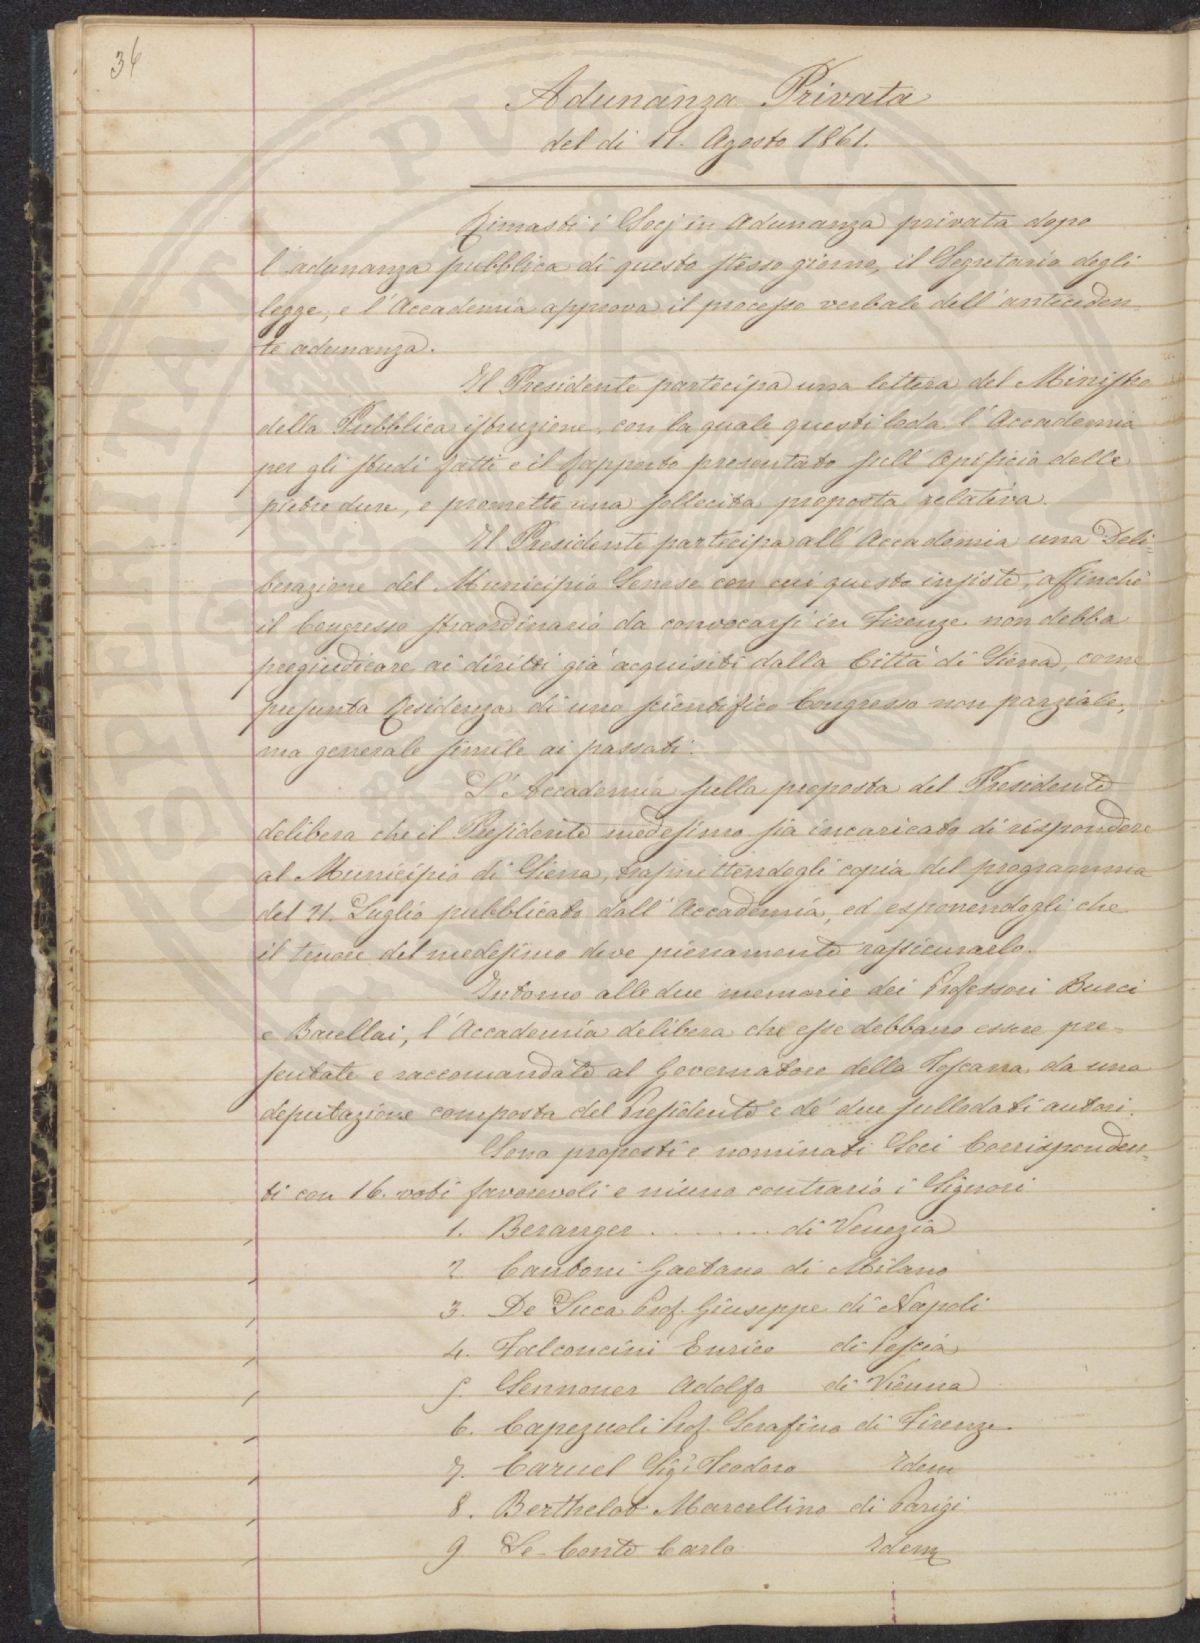 36
Adunanza Privata
del dì 11. Agosto 1861.
Rimasti i Socj in adunanza privata dopo
l'adunanza pubblica di questo stesso giorno, il Segretario degli
legge, e l'Accademia approva il processo verbale dell'anteceden-
te adunanza.
Il Presidente partecipa una lettera del Ministro
della Pubblica istruzione, con la quale questi loda l'Accademia
per gli studi fatti e il rapporto presentato sull'Opificio delle
pietre dure, e promette una sollecita proposta relativa.
Il Presidente partecipa all'Accademia una Deli=
berazione del Municipio Senese con cui questo insiste, affinchè
il Congresso straordinario da convocarsi in Firenze non debba
pregiudicare ai diritti già acquisiti dalla Città di Siena, come
presunta Residenza di uno scientifico Congresso non parziale,
ma generale simile ai passati.
L'Accademia sulla proposta del Presidente
delibera che il Presidente medesimo sia incaricato di rispondere
al Municipio di Siena, trasmettendogli copia del programma
del 21. Luglio pubblicato dall'Accademia, ed esponendogli che
il tenore del medesimo deve pienamente rassicurarlo.
Intorno alle due memorie dei Professori Burci
e Barellai, l'Accademia delibera che esse debbano essere pre=
sentate e raccomandate al Governatore della Toscana da una
deputazione composta del Presidente e de' due sullodati autori.
Sono proposti e nominati Soci Corrisponden=
ti con 16. voti favorevoli e niuno contrario i Signori
1. Beranger . . . . . . . . di Venezia
2. Cantoni Gaetano di Milano
3. De Luca Prof. Giuseppe di Napoli
4. Falconcini Enrico di Pescia
5. Sennoner Adolfo di Vienna
6. Capezuoli Prof. Serafino di Firenze
7. Caruel Sigr. Teodoro Idem
8. Berthelot Marcellino di Parigi
9 Le-Conte Carlo Idem